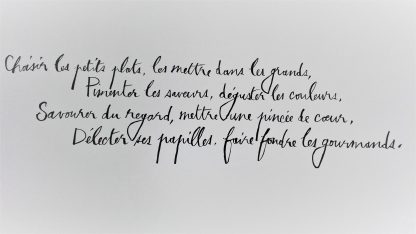 Choisir les petits plats, les mettre dans les grands,
Pimenter les saveurs, déguster les couleurs,
Savourer du regard, mettre une pincée de cœur,
Délecter ses papilles, faire fondre les gourmands.